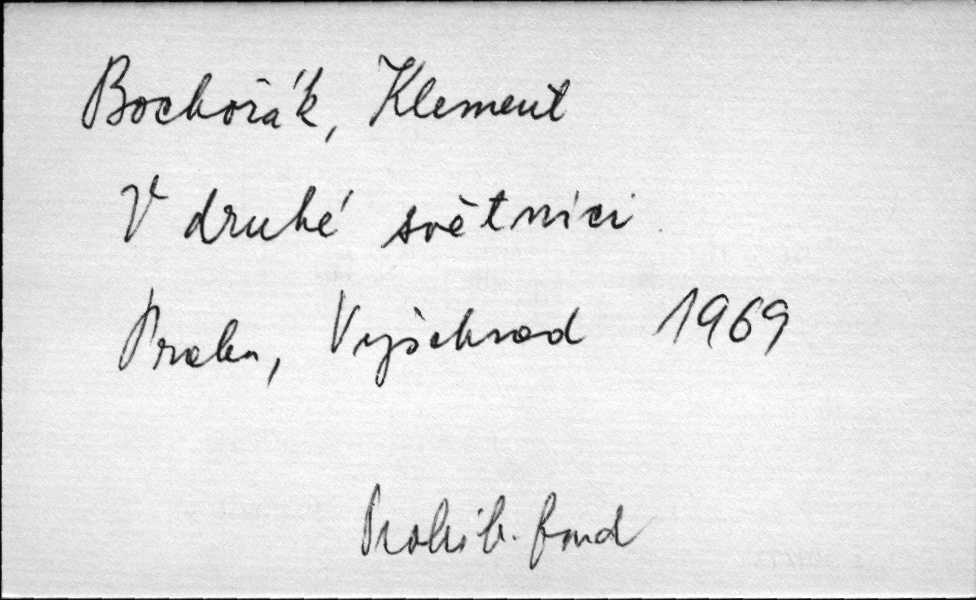 Bochořák, Klement
V druhé světnici
Praha, Vyšehrad 1969
Prohib. fond